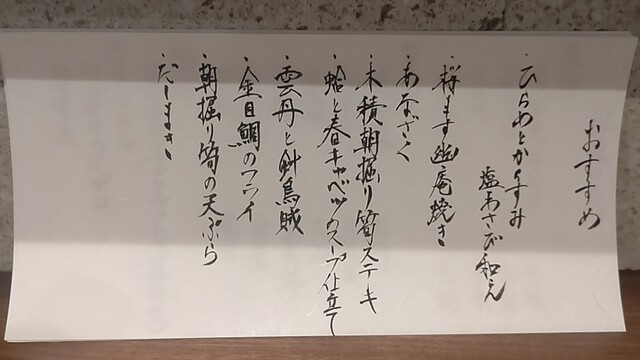 おすすめ
・ひらめとからすみ
塩わさび和え
・桜ます幽庵焼き
・あなざく
・木積朝掘り筍ステーキ
・蛤と春キャベツのスープ仕立て
・雲丹と針烏賊
・金目鯛のフライ
・朝掘り筍の天ぷら
・だしまき